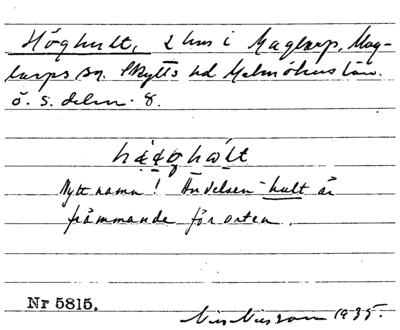 Höghult, 2 hus i Maglarp, Mag-
larps sn. Skytts hd Malmöhus län.
ö. s. delen. 8.
Nytt namn! Ändelsen -hult är
främmande för orten.
Nr 5815.
Nils Nilsson 1935.